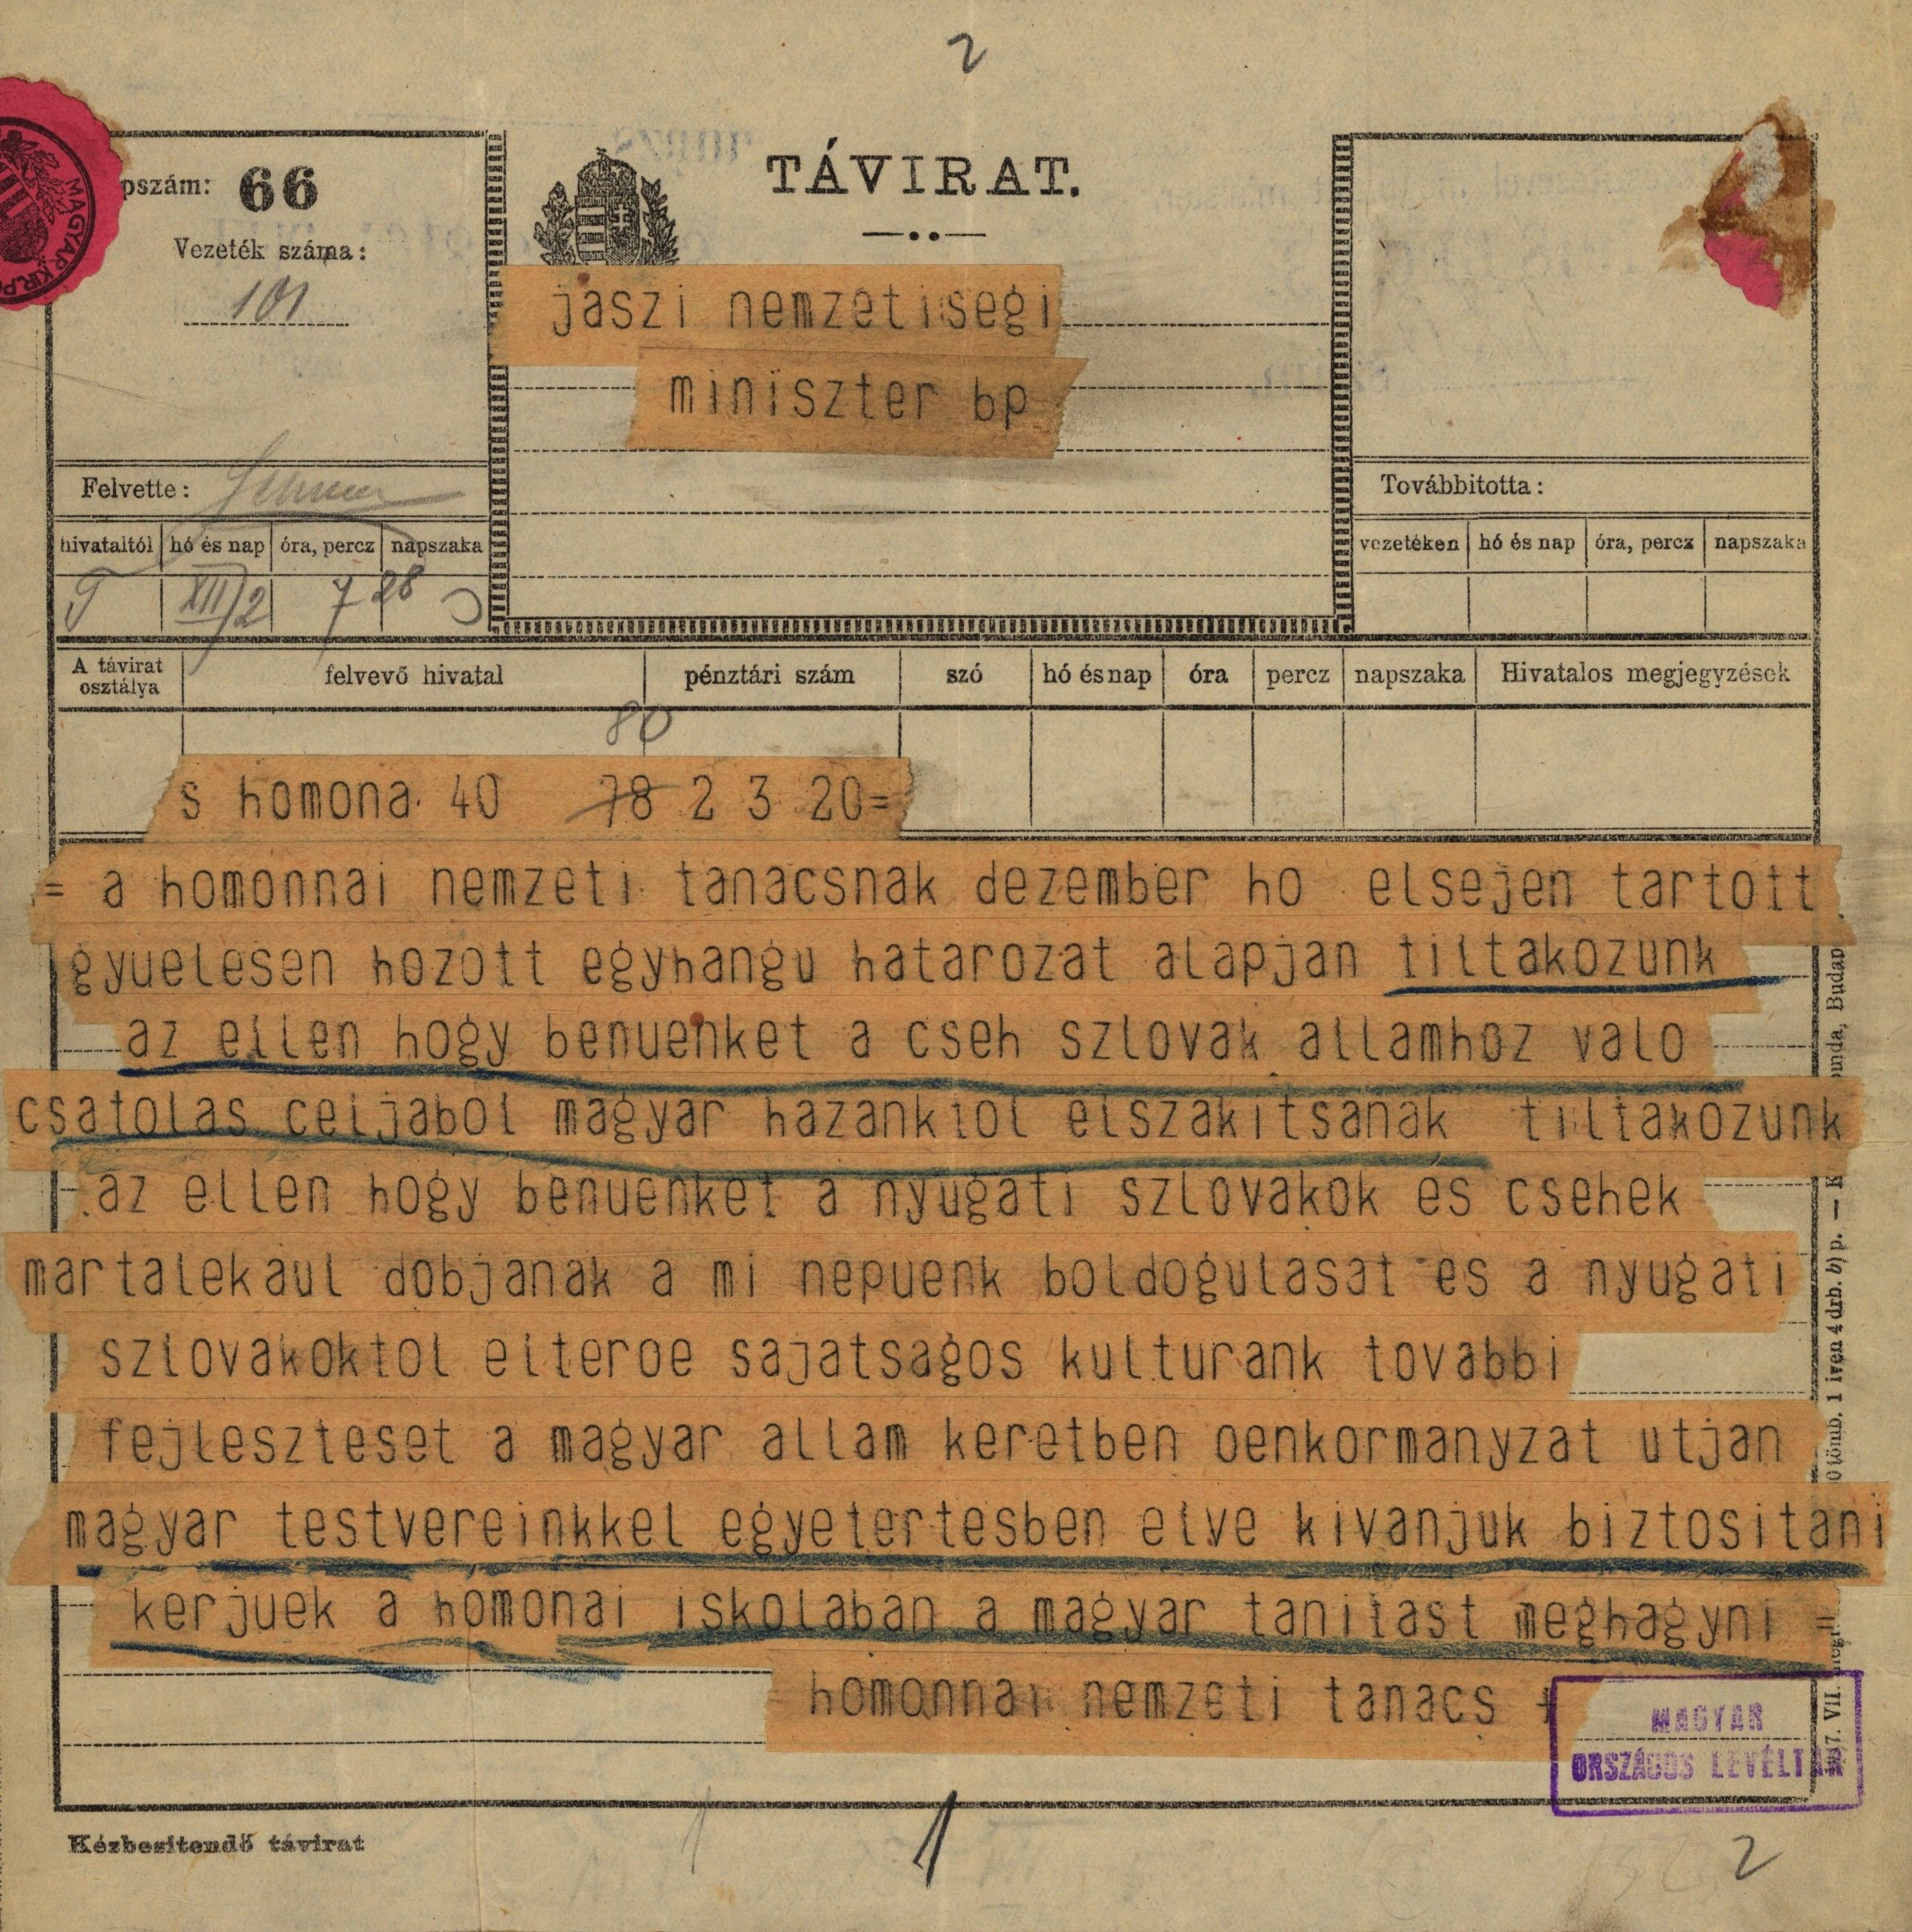 2
TÁVIRAT.
pszám: 66
Vezeték száma:
101
MAGYAR KIR. PO
jaszi nemzetisegi
miniszter bp
Felvette:
Továbbitotta:
hivataltól hó és nap óra, percz napszaka
vezetéken hó és nap óra, percz napszaka
T XII/2 7 28
A távirat osztálya felvevő hivatal pénztári szám szó hó és nap óra percz napszaka Hivatalos megjegyzések
80
s homona 40 78 2 3 20=
= a homonnai nemzeti tanacsnak dezember ho elsejen tartott
gyuelesen hozott egyhangu hatarozat alapjan tiltakozunk
az ellen hogy benuenket a cseh szlovak allamhoz valo
csatolas celjabol magyar hazanktol elszakitsanak tiltakozunk
az ellen hogy benuenket a nyugati szlovakok es csehek
martalekaul dobjanak a mi nepuenk boldogulasat es a nyugati
szlovakoktol elteroe sajatsagos kulturank tovabbi
fejleszteset a magyar allam keretben oenkormanyzat utjan
magyar testvereinkkel egyetertesben elve kivanjuk biztositani
kerjuek a homonai iskolaban a magyar tanitast meghagyni =
homonnai nemzeti tanacs +
MAGYAR
ORSZÁGOS LEVÉLTÁR
Kézbesitendő távirat
1
2